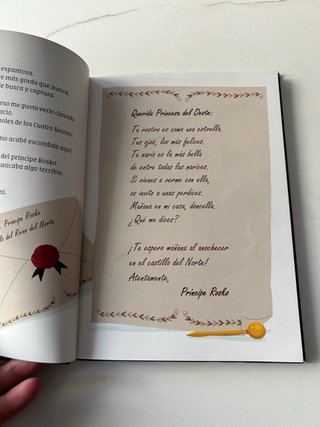 espantosa.
más gorda que nunca.
e busca y captura.
eso me gusta verlo clavado
acio.
boles de los Cuatro Reinos:
mo acabé escondida aquí
del príncipe Rosko,
unicaba algo terrible.
Príncipe Rosko
del Reino del Norte
Querida Princesa del Deste:
Tu rostro es como una estrella.
Tus ojos, los más felices.
Tu nariz es la más bella
de entre todas las narices.
Si vienes a verme con ella,
os invito a unas perdices.
Mañana en mi casa, doncella.
¿Qué me dices?
¡Te espero mañana al anochecer
en el castillo del Norte!
Atentamente,
Príncipe Rosko